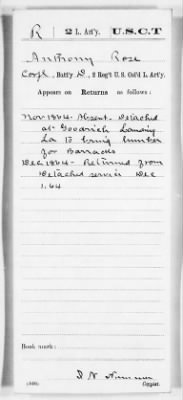 R 2 L. Art'y. U.S.C.T
Anthony Rose
Corpl., Batt'y D, 2 Reg't U. S. Col'd L. Art'y.
Appears on Returns as follows:
Nov 1864 - Absent. Detached
at Goodrich Landing
La to bring lumber
for Barracks
Dec 1864 - Returned from
Detached service Dec
1.64
Book mark:
Copyist.